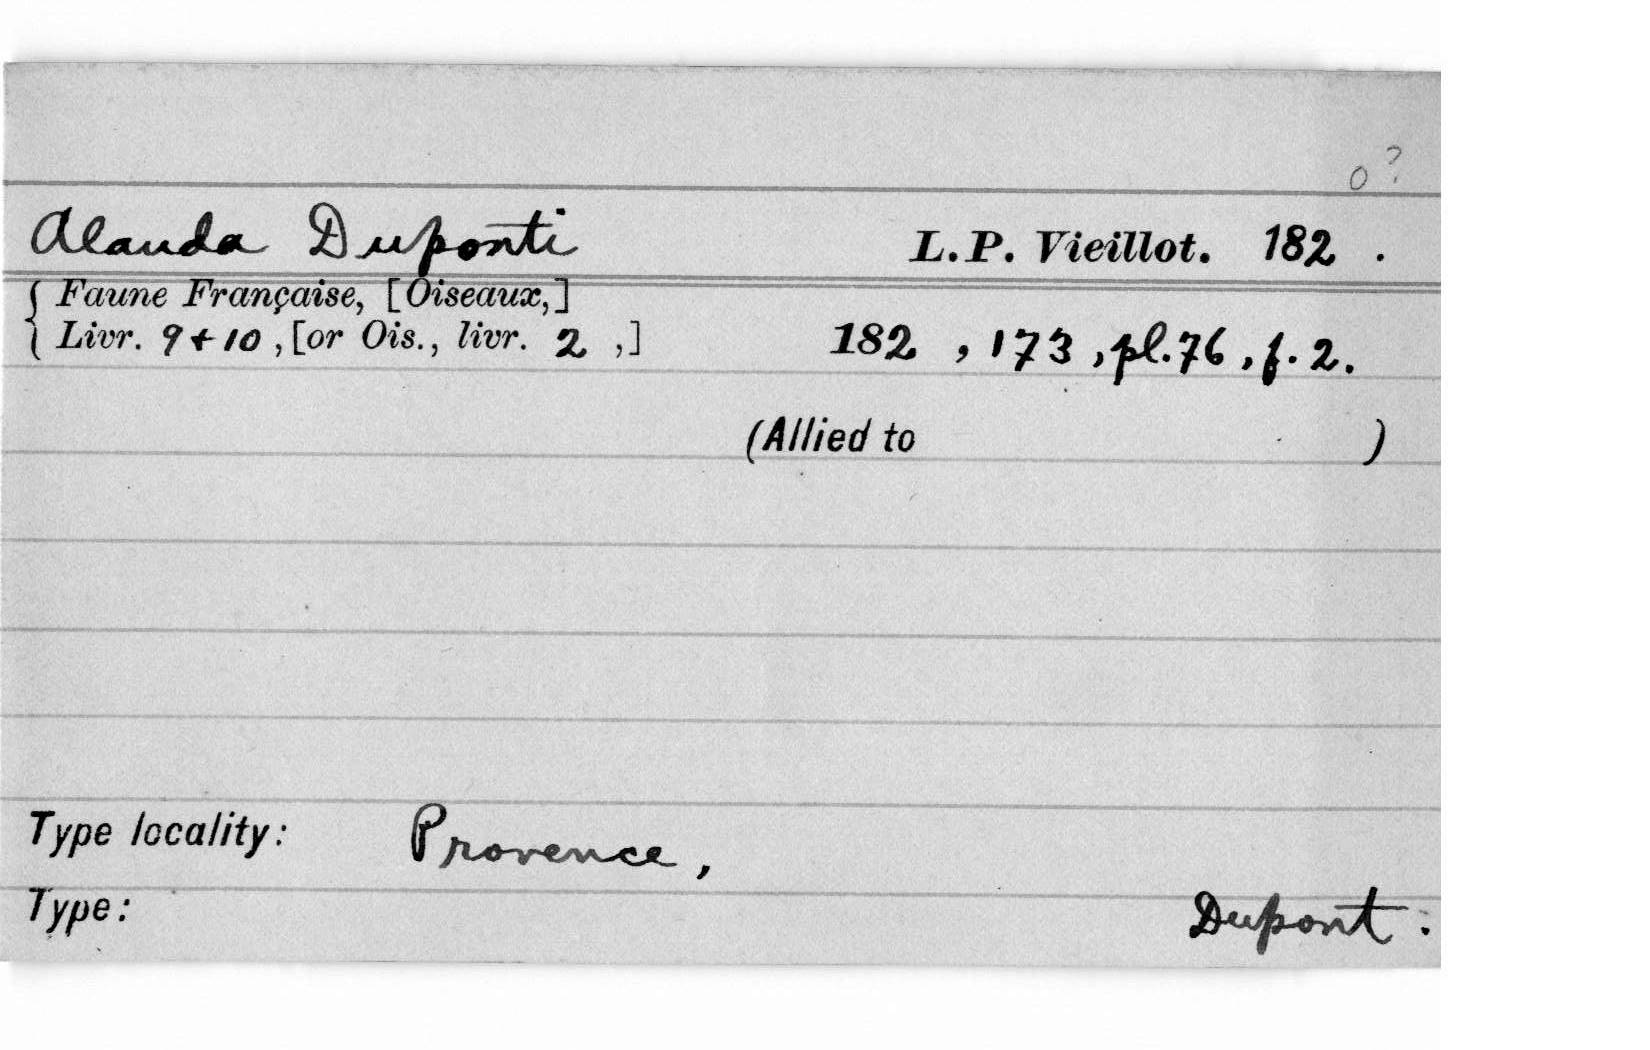 o ?
Alauda Duponti L.P. Vieillot. 182 .
{ Faune Française, [Oiseaux,]
Livr. 9+10 , [or Ois., livr. 2 ,] 182 , 173 , pl. 76 , f. 2.
(Allied to )
Type locality: Provence,
Type: Dupont.